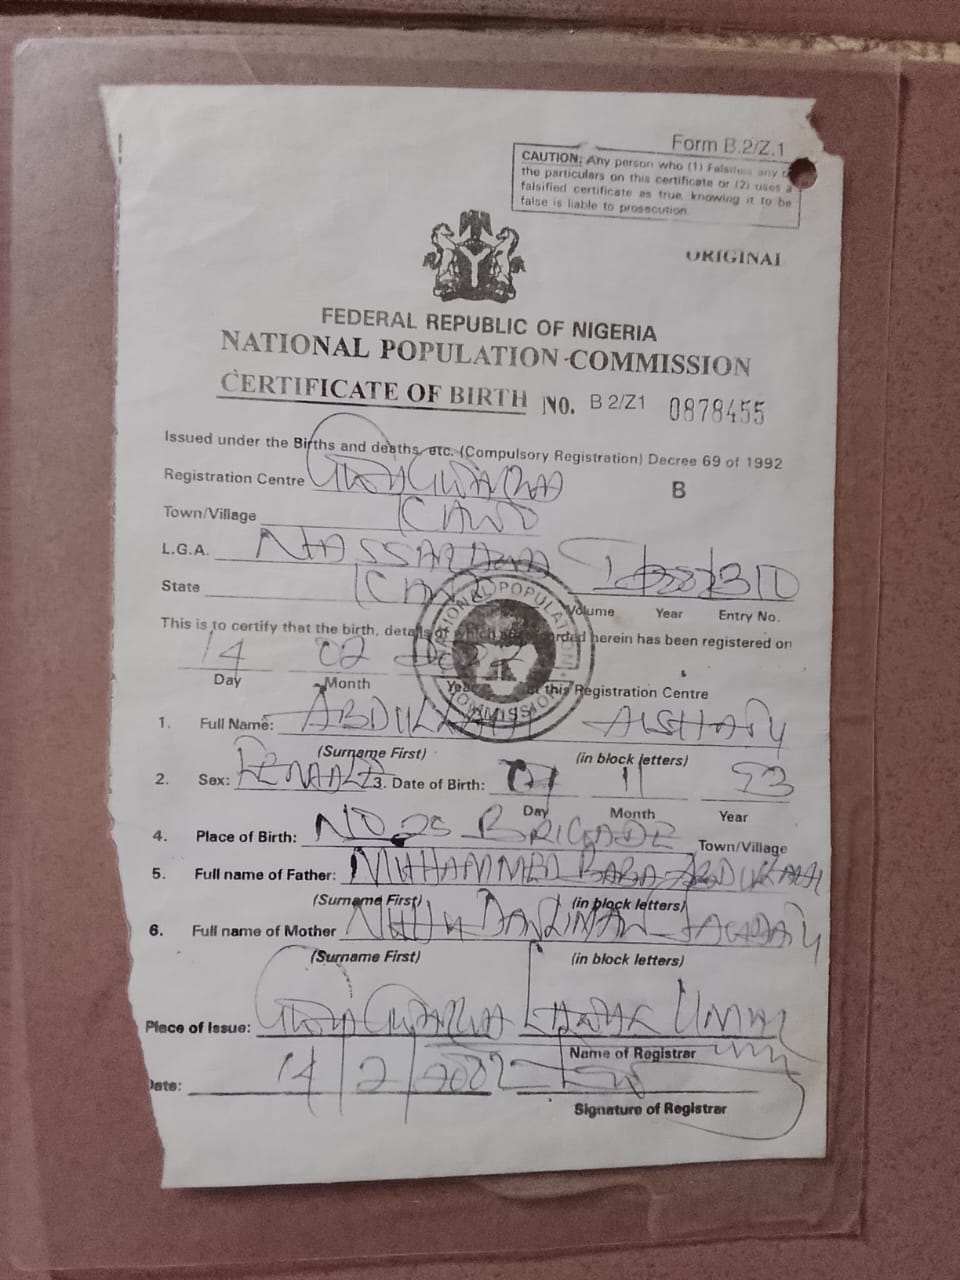 Form B.2/Z.1
CAUTION: Any person who (1) Falsifies any
the particulars on this certificate or (2) uses a
falsified certificate as true, knowing it to be
false is liable to prosecution
ORIGINAL
FEDERAL REPUBLIC OF NIGERIA
NATIONAL POPULATION COMMISSION
CERTIFICATE OF BIRTH NO. B 2/Z1 0878455
Issued under the Births and deaths, etc. (Compulsory Registration) Decree 69 of 1992
Registration Centre
B
Town/Village
L.G.A. NASSARAWA
State
Volume Year Entry No.
This is to certify that the birth, details of which are recorded herein has been registered on
14 02
Day Month Year at this Registration Centre
NATIONAL POPULATION COMMISSION
1. Full Name: ABDULLAHI
(Surname First) (in block letters)
2. Sex: FEMALE 3. Date of Birth: 07 11 93
Day Month Year
4. Place of Birth: NO 20 BRIGADE Town/Village
5. Full name of Father: MUHAMMED BABA ABDULLAHI
(Surname First) (in block letters)
6. Full name of Mother
(Surname First) (in block letters)
Place of Issue: UMAR
Name of Registrar
Date: 14/2/2002
Signature of Registrar